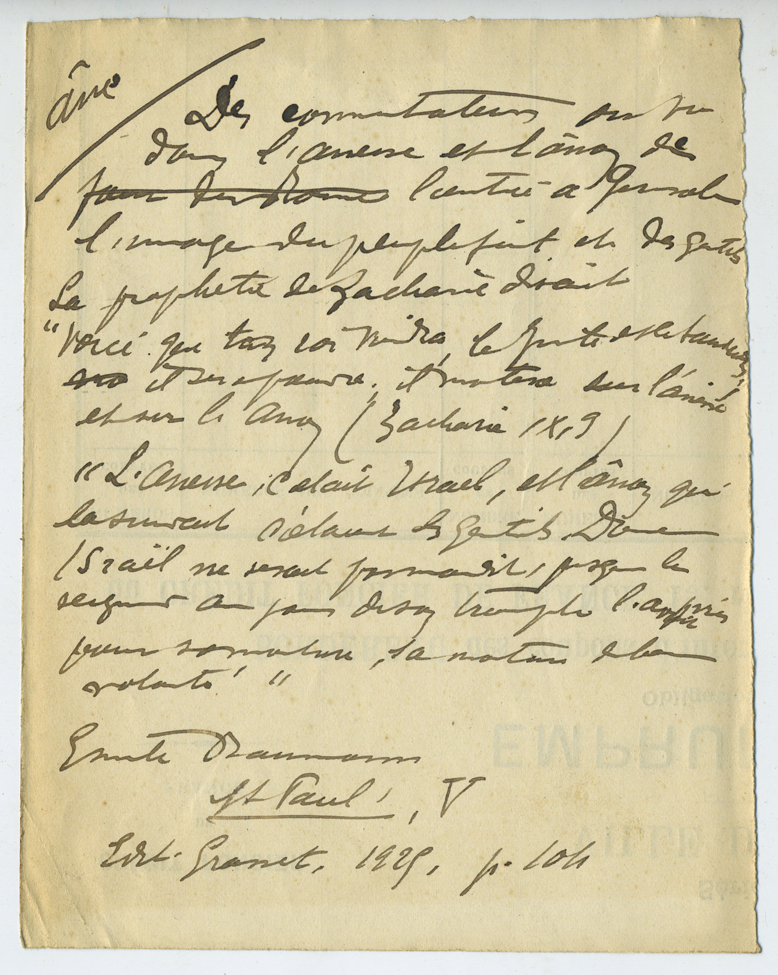 âne
Des commentateurs ont vu
dans l'anesse et l'ânon de
l'entrée à Jérusalem
l'image du peuple juif et des gentils
La prophetie de Zacharie disait
"Voici que ton roi viendra, le Juste et le
il sera pauvre, il montera sur l'ânesse
et sur le anon (Zacharie IX, 9)
"L'anesse, c'etait Israel, et l'ânon qui
la suivait c'étaient les gentils. Donc
Israël ne serait pas maudit, puisque le
seigneur au jour de son triomphe l'a pris
pour sa monture, sa monture de bonne
volonté" "
Emile Baumann
St Paul, V
Edit. Grasset, 1925, p. 104
EMPRU